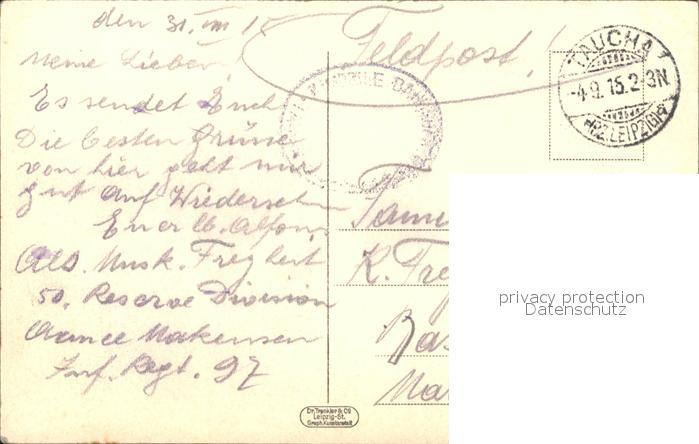 den 31. VIII 15
Feldpost!
Meine Lieben!
Es sendet Euch
Die besten Grüsse
von hier geht mir
gut Auf Wiedersehn
Euer lb. Alfons
Abs. Musk. Freybert
50. Reserve Division
Aamee Makensen
Inf. Regt. 97
TAUCHA
-4.9.15.2-3N.
*BZ. LEIPZIG)a
MOBILE BAHNHOFS
Fami
K. Frey
Bas
Ma
privacy protection
Datenschutz
Dr. Trenkler & Co
Leipzig-St.
Graph. Kunstanstalt